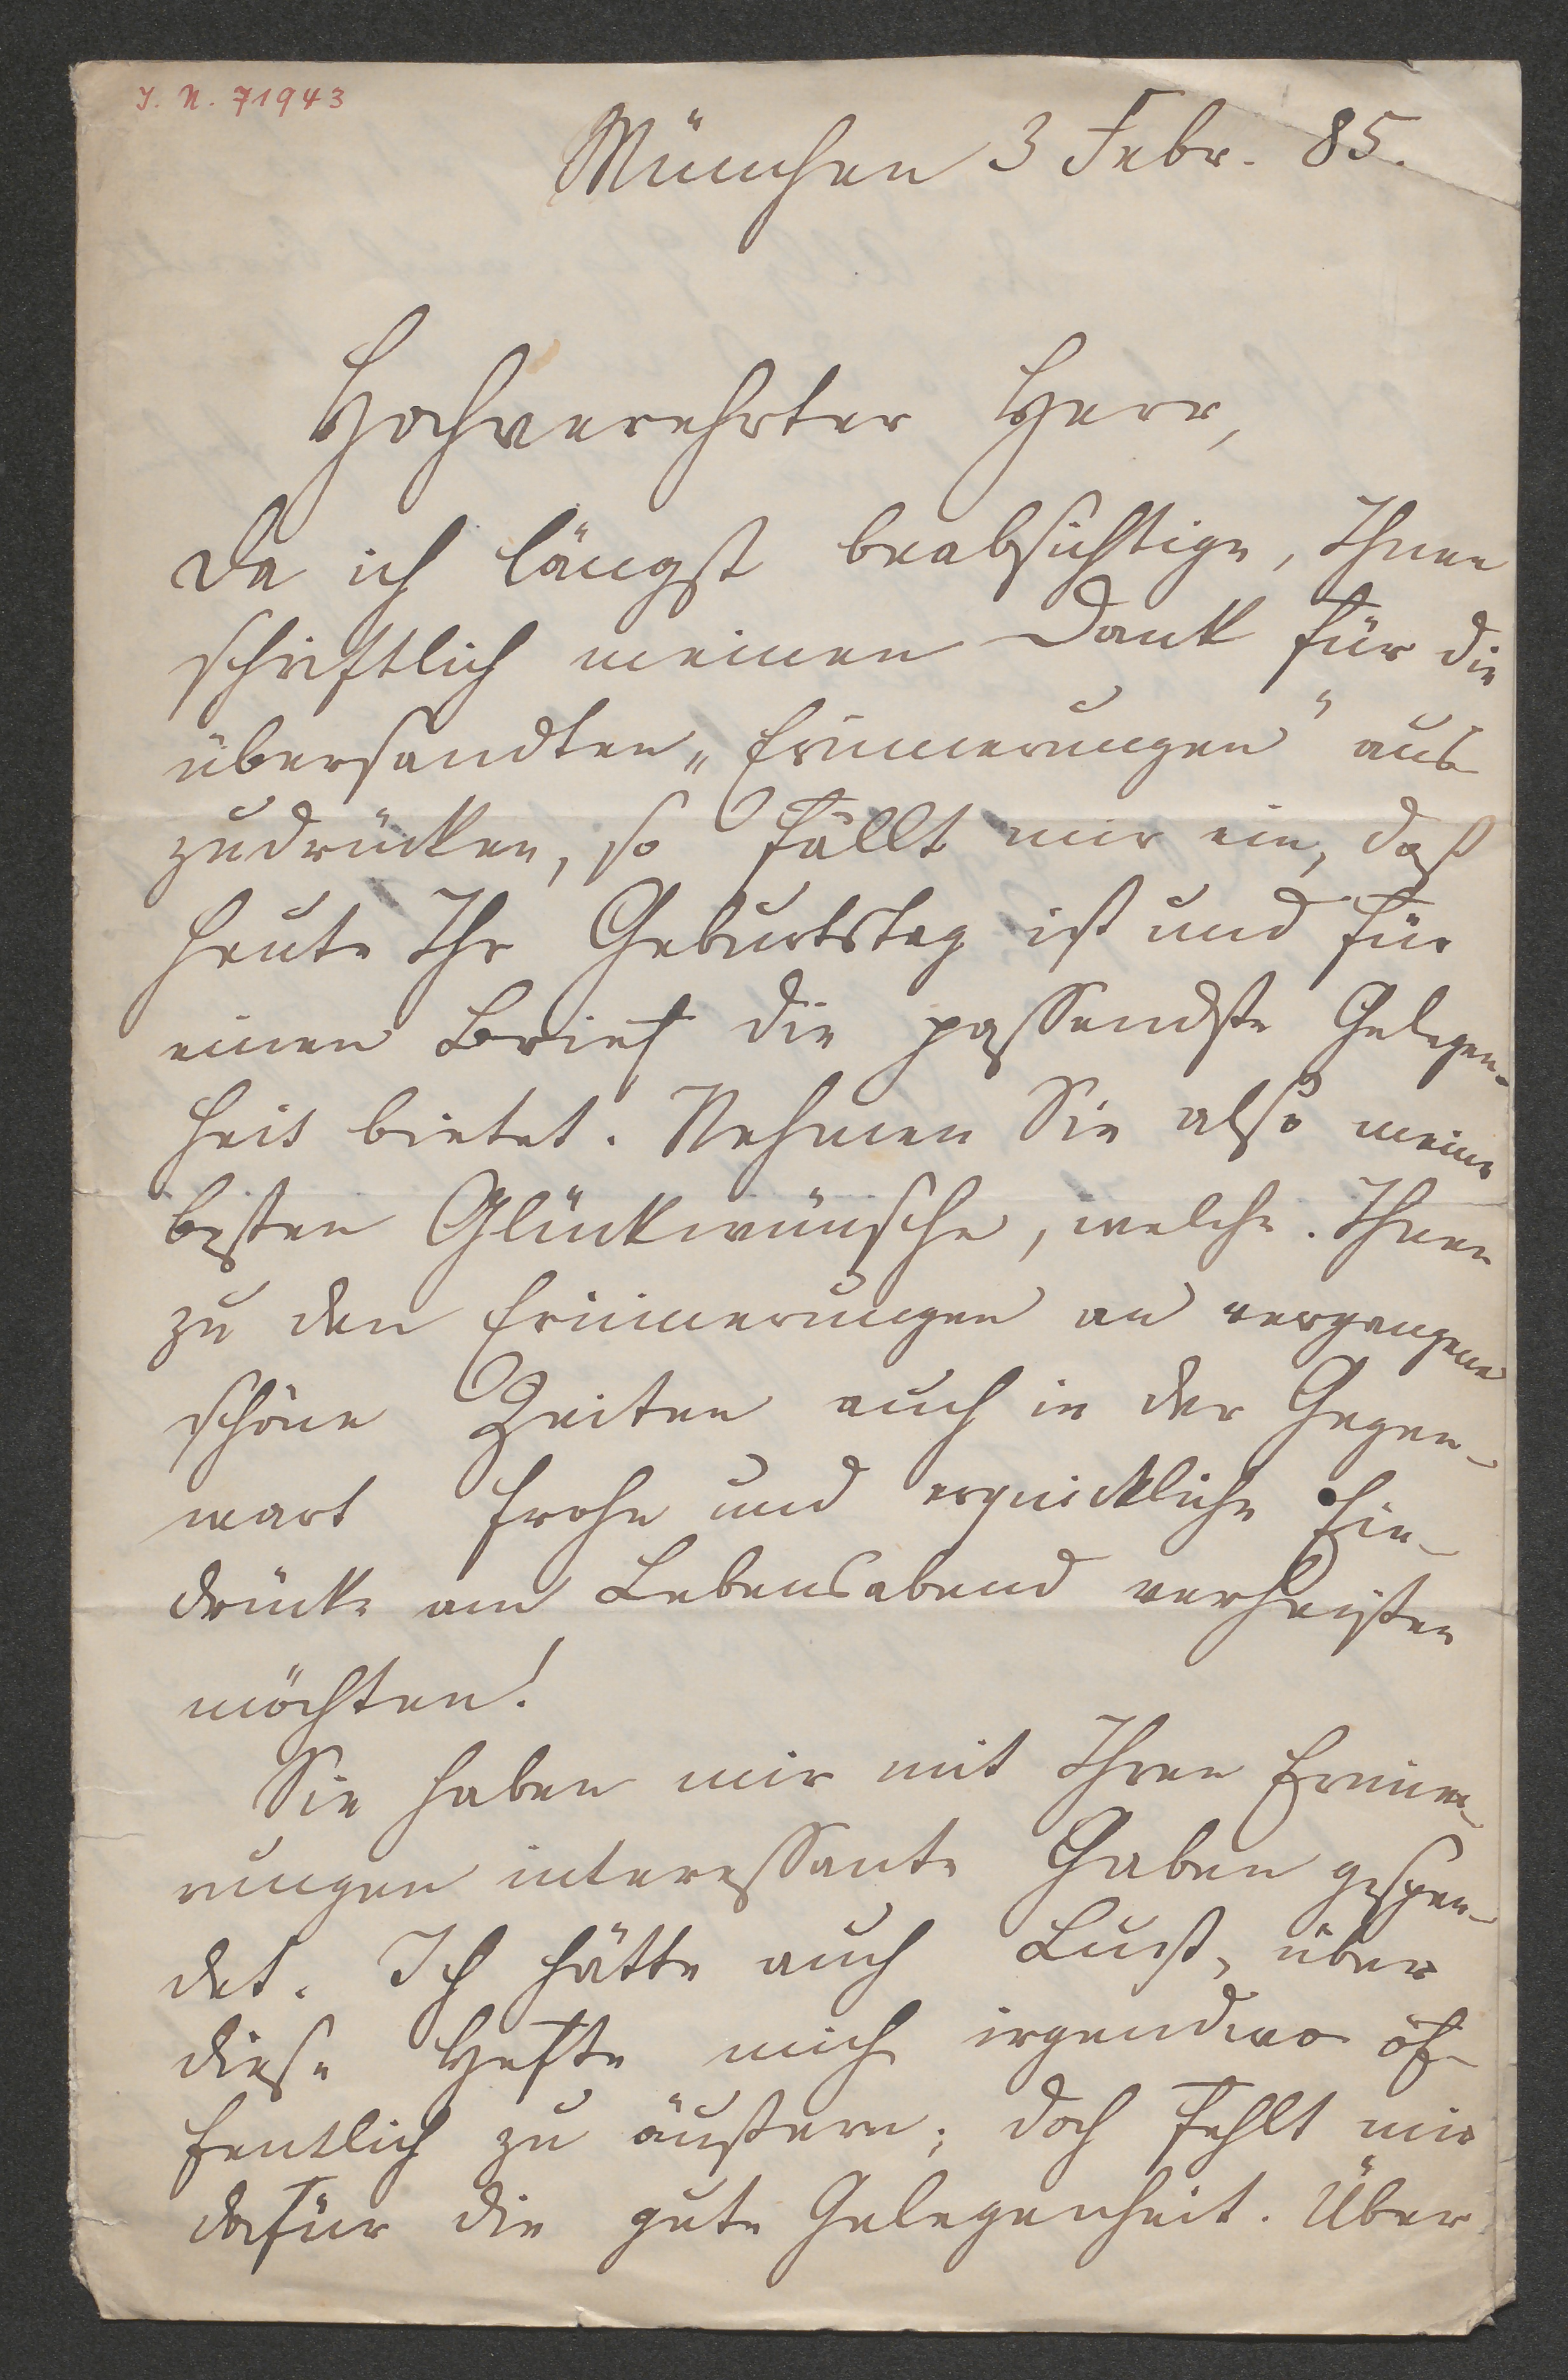 I. N. 71943
München 3 Febr. 85.
Hochverehrter Herr,
da ich längst beabsichtige, Ihnen
schriftlich meinen Dank für die
übersandten „Erinnerungen" aus
zudrücken, so fällt mir ein, daß
heute Ihr Geburtstag ist und für
einen Brief die passendste Gelegen-
heit bietet. Nehmen Sie also meine
besten Glückwünsche, welche Ihnen
zu den Erinnerungen an vergangene
schöne Zeiten auch in der Gegen-
wart frohe und erquickliche Ein-
drücke am Lebensabend verheißen
möchten!
Sie haben mir mit Ihren Erinne-
rungen interessante Gaben gespen-
det. Ich hätte auch Lust, über
diese Hefte mich irgendwo öf-
fentlich zu äußern; doch fehlt mir
dafür die gute Gelegenheit. Über